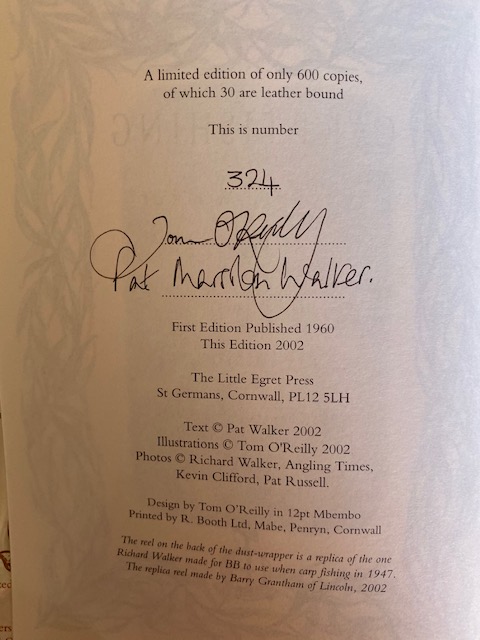 A limited edition of only 600 copies,
of which 30 are leather bound
This is number
324
Tom O'Reilly
Pat Marston Walker.
First Edition Published 1960
This Edition 2002
The Little Egret Press
St Germans, Cornwall, PL12 5LH
Text © Pat Walker 2002
Illustrations © Tom O'Reilly 2002
Photos © Richard Walker, Angling Times,
Kevin Clifford, Pat Russell.
Design by Tom O'Reilly in 12pt Mbembo
Printed by R. Booth Ltd, Mabe, Penryn, Cornwall
The reel on the back of the dust-wrapper is a replica of the one
Richard Walker made for BB to use when carp fishing in 1947.
The replica reel made by Barry Grantham of Lincoln, 2002